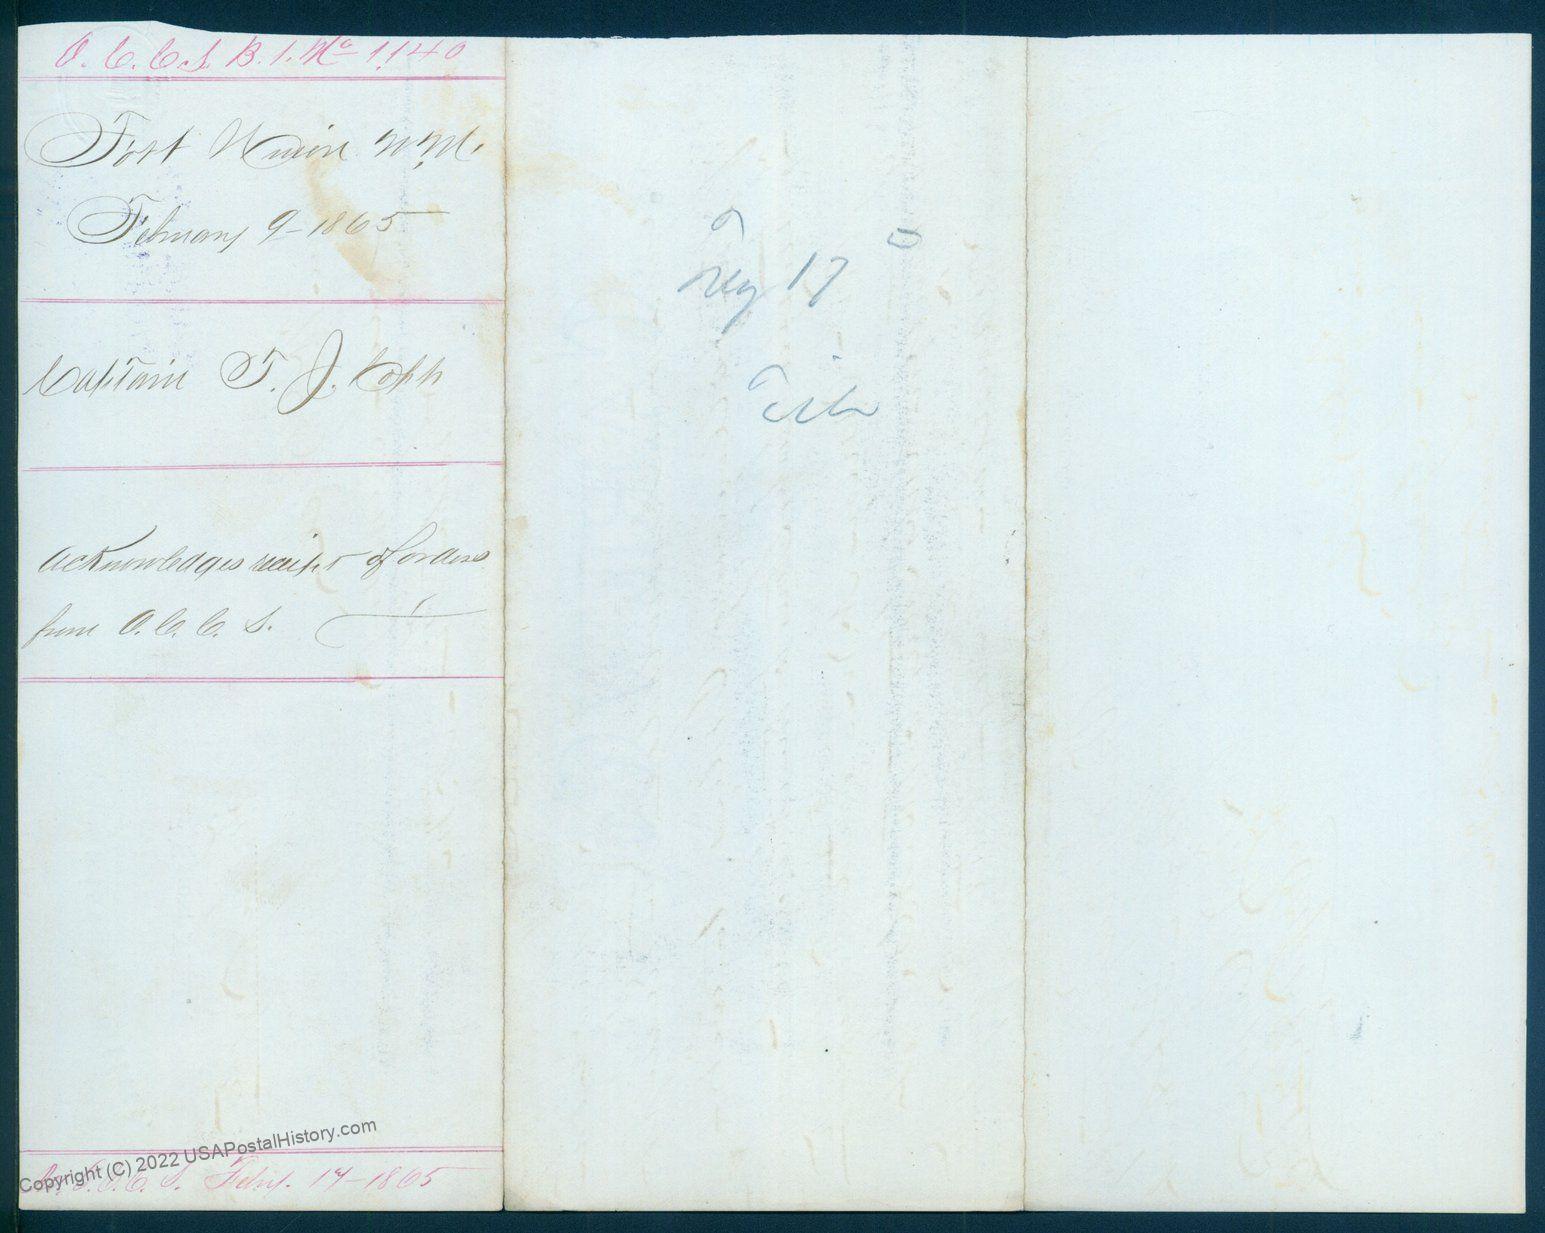 O. C. C. S. B. 1. No 1,140
Fort Union N.M.
February 9-1865
Captain T. J. Copp
Acknowledges receipt of orders
from O. C. C. S.
17
File
Copyright (C) 2022 USAPostalHistory.com
C. S. Feby. 17-1865